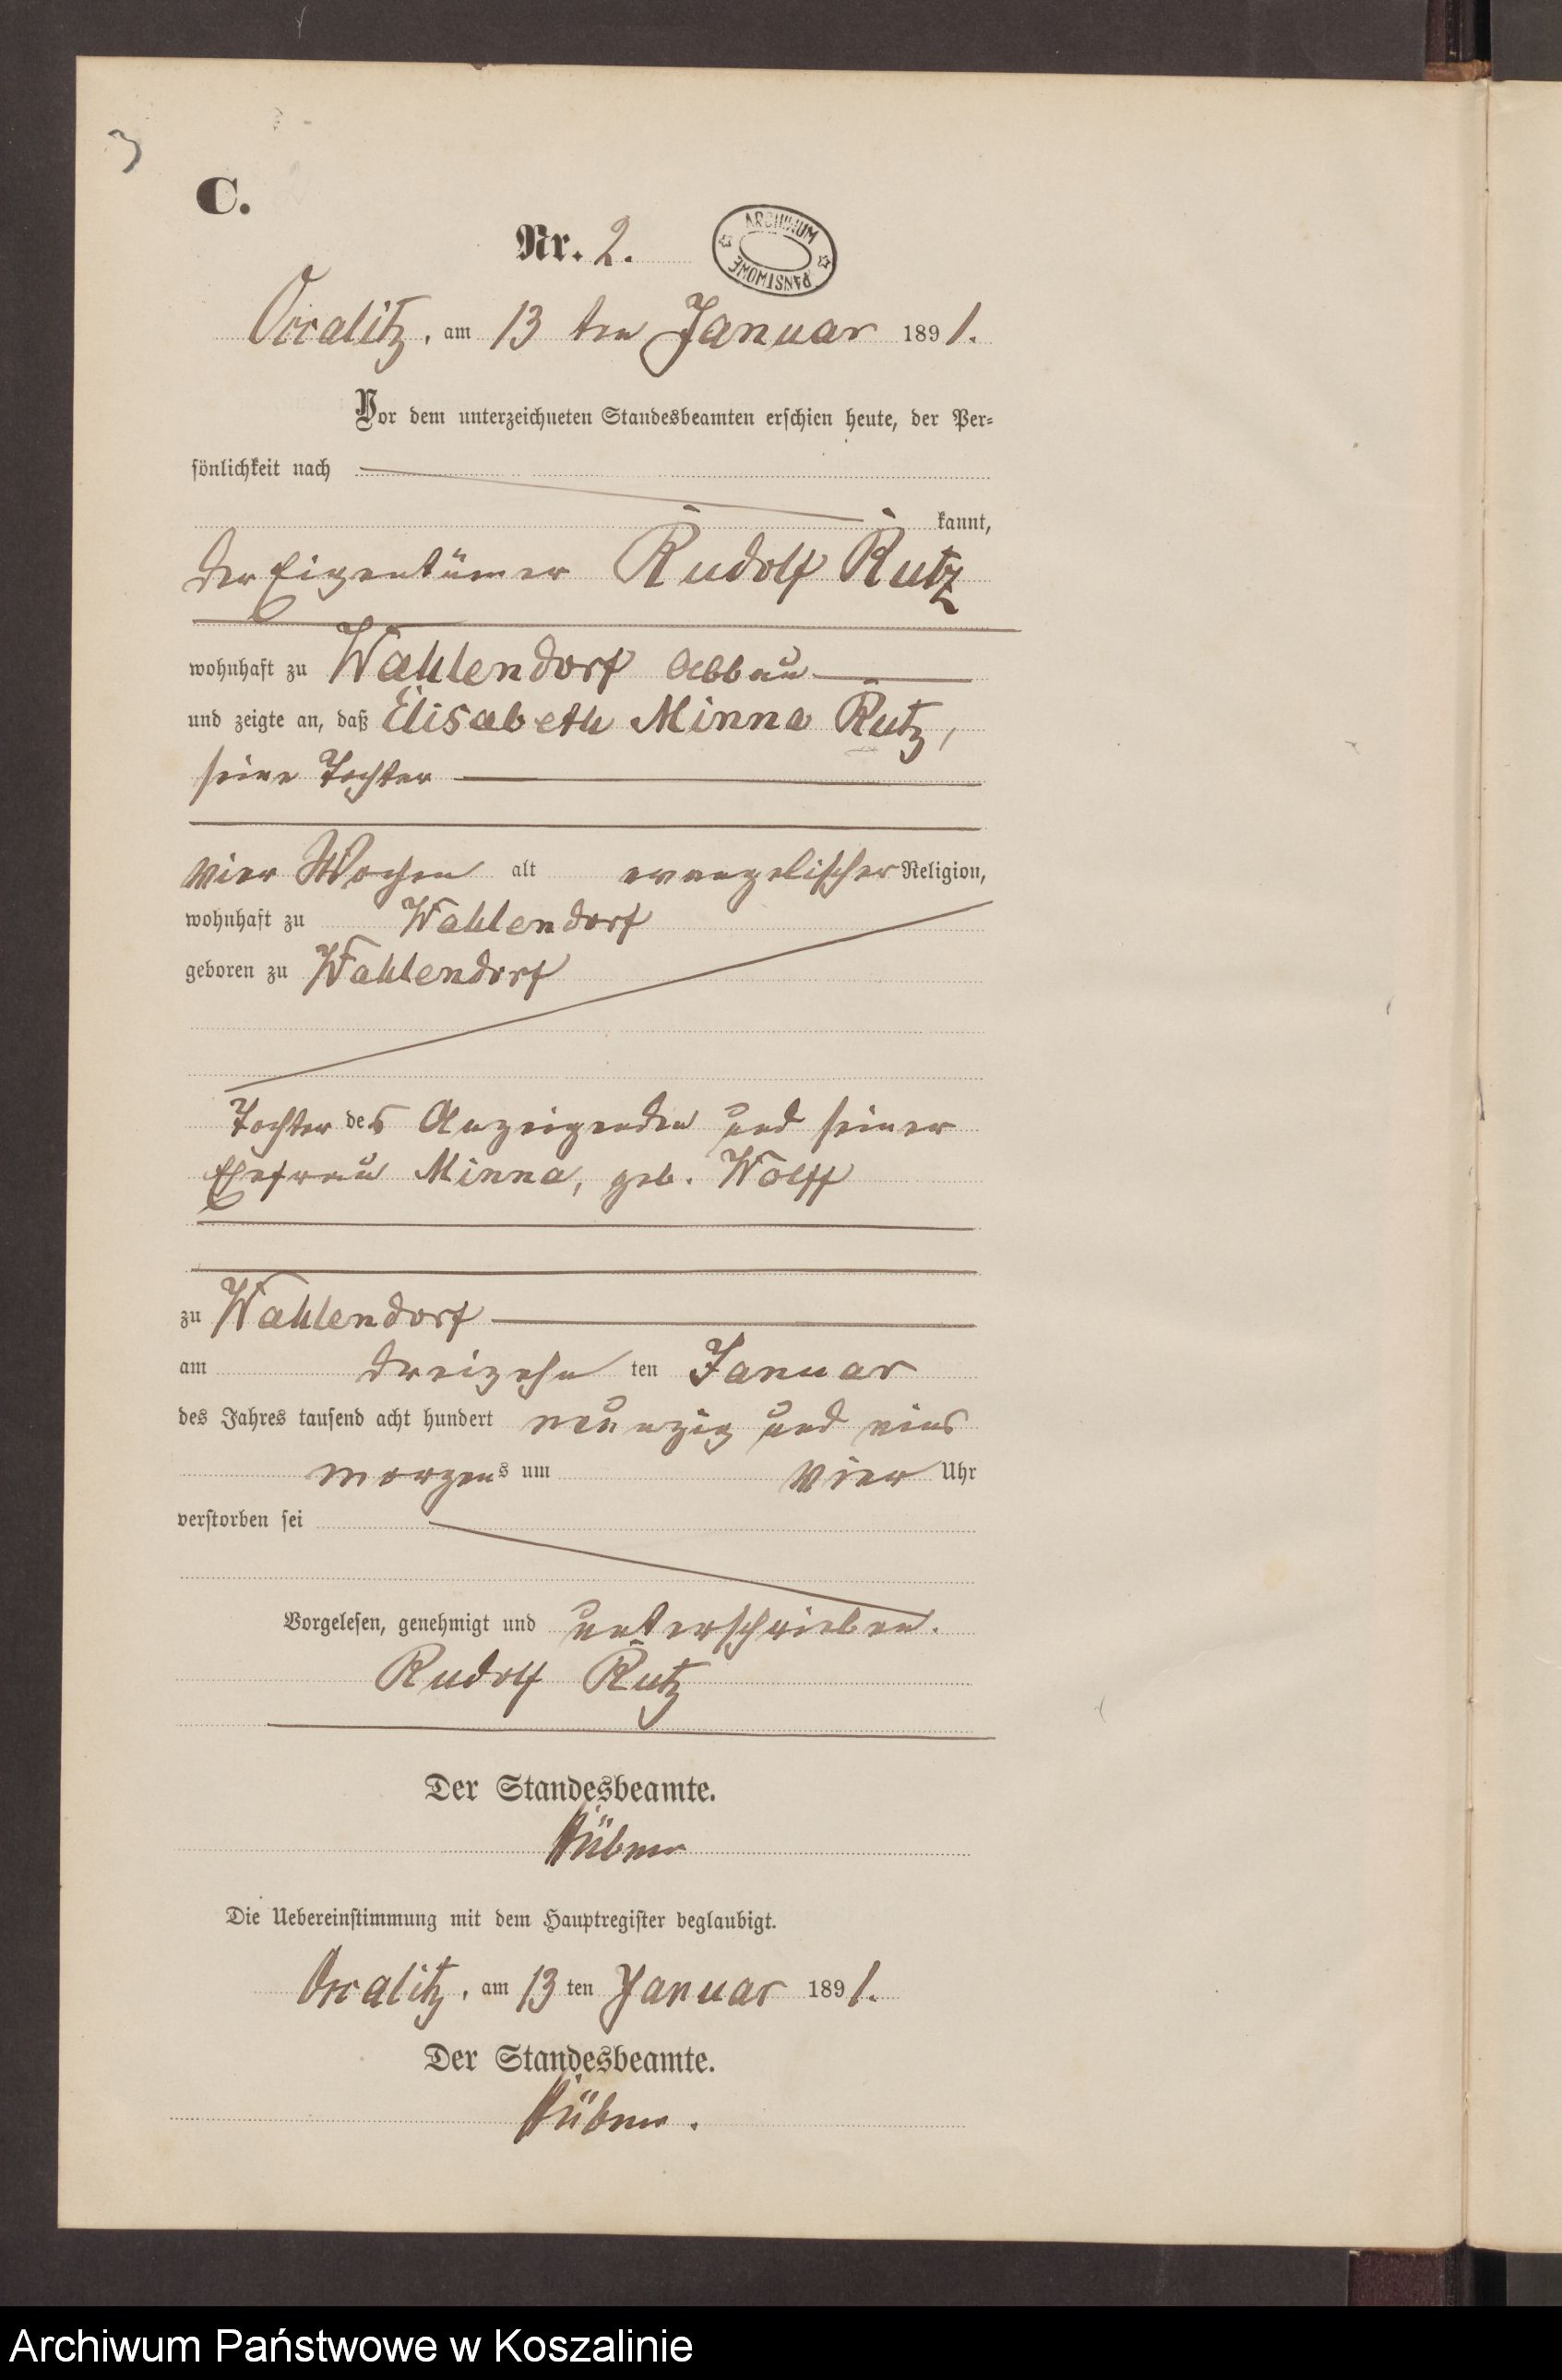 3
C.
Nr. 2.
ARCHIWUM PAŃSTWOWE
Occalitz, am 13 ten Januar 1891.
Vor dem unterzeichneten Standesbeamten erschien heute, der Per-
sönlichkeit nach
kannt,
der Eigentümer Rudolf Rutz
wohnhaft zu Wahlendorf Abbau
und zeigte an, daß Elisabeth Minna Rutz,
seine Tochter
vier Wochen alt evangelischer Religion,
wohnhaft zu Wahlendorf
geboren zu Wahlendorf
Tochter des Anzeigenden und seiner
Ehefrau Minna, geb. Wolff
zu Wahlendorf
am dreizehn ten Januar
des Jahres tausend acht hundert neunzig und eins
morgens um vier Uhr
verstorben sei
Vorgelesen, genehmigt und unterschrieben.
Rudolf Rutz
Der Standesbeamte.
Hübner
Die Uebereinstimmung mit dem Hauptregister beglaubigt.
Occalitz, am 13 ten Januar 1891.
Der Standesbeamte.
Hübner.
Archiwum Państwowe w Koszalinie